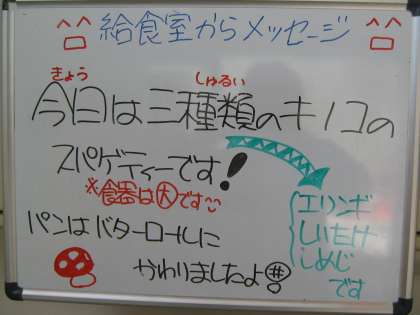 給食室からメッセージ
きょう しゅるい
今日は三種類のキノコの
スパゲティーです!
※食器は大です
エリンギ
しいたけ
しめじ
です
パンはバターロールに
かわりましたよ!!